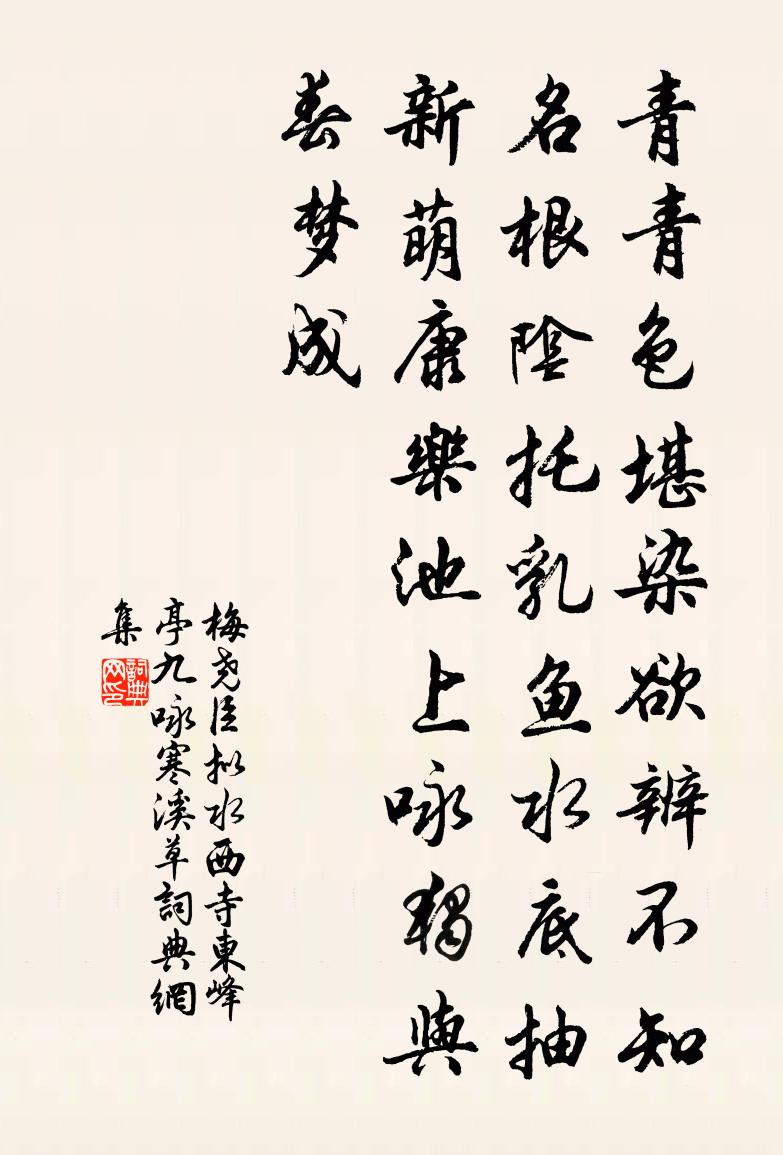 青青色堪染欲辨不知
名根陰托乳鱼水底抽
新萌康樂池上咏獨與
春梦成
梅尧臣拟水西寺東峰
亭九咏寒溪草詞典網
集
詞典
网印